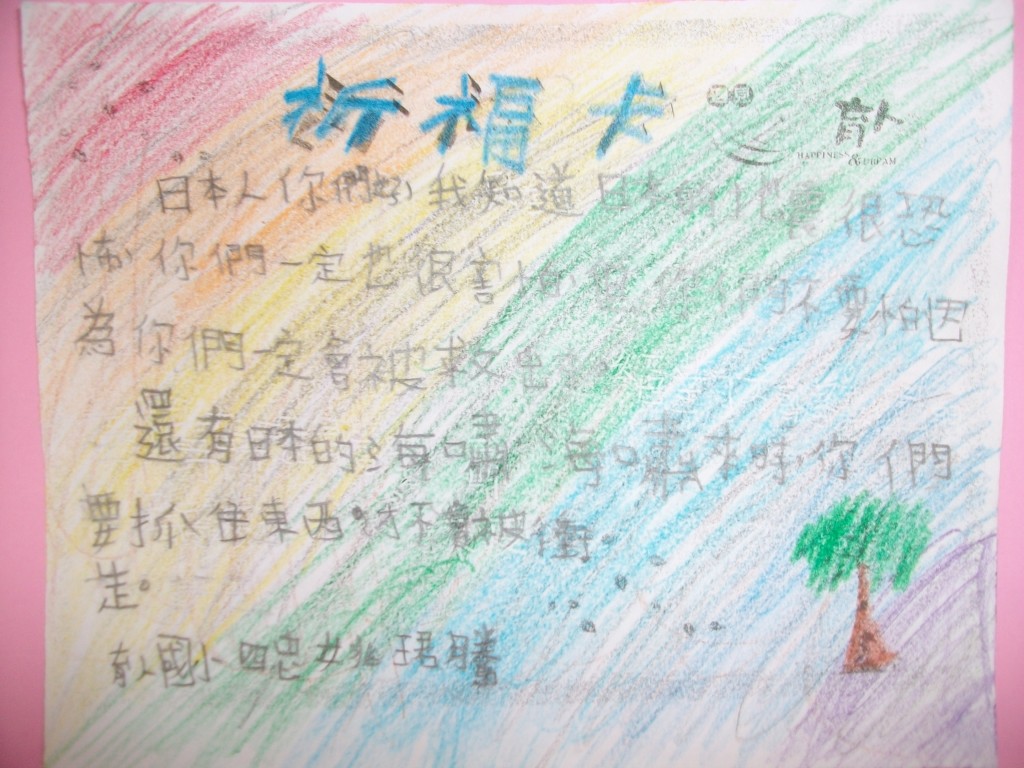 祈福卡
育人
HAPPINESS & DREAM
日本人你們好我知道日本的地震很恐
怖你們一定也很害怕但你們不要怕因
為你們一定會被救出
還有日本的海嘯海嘯來時你們
要抓住東西才不會被衝
走。
育人國小四忠 珺騰